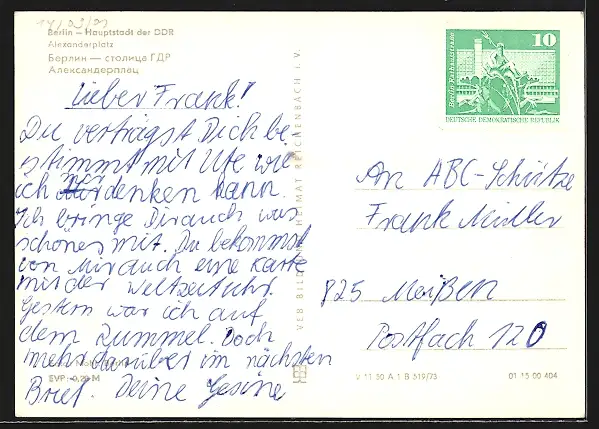 Berlin – Hauptstadt der DDR
Alexanderplatz
Берлин — столица ГДР
Александерплац
Lieber Frank!
Du verträgst Dich be
stimmt mit Ute wie
ich mir denken kann.
Ich bringe Dir auch was
schönes mit. Du bekommst
von mir auch eine Karte
mit der Weltzeituhr.
Gestern war ich auf
dem Rummel. Doch
mehr darüber im nächsten
Brief. Deine Gesine
EVP: 0,20 M
VEB BILD HEIMAT REICHENBACH I. V.
Berlin Rathausstraße
10
DEUTSCHE DEMOKRATISCHE REPUBLIK
An ABC-Schütze
Frank Müller
825 Meißen
Postfach 120
V 11 50 A 1 B 519/73
01 15 00 404